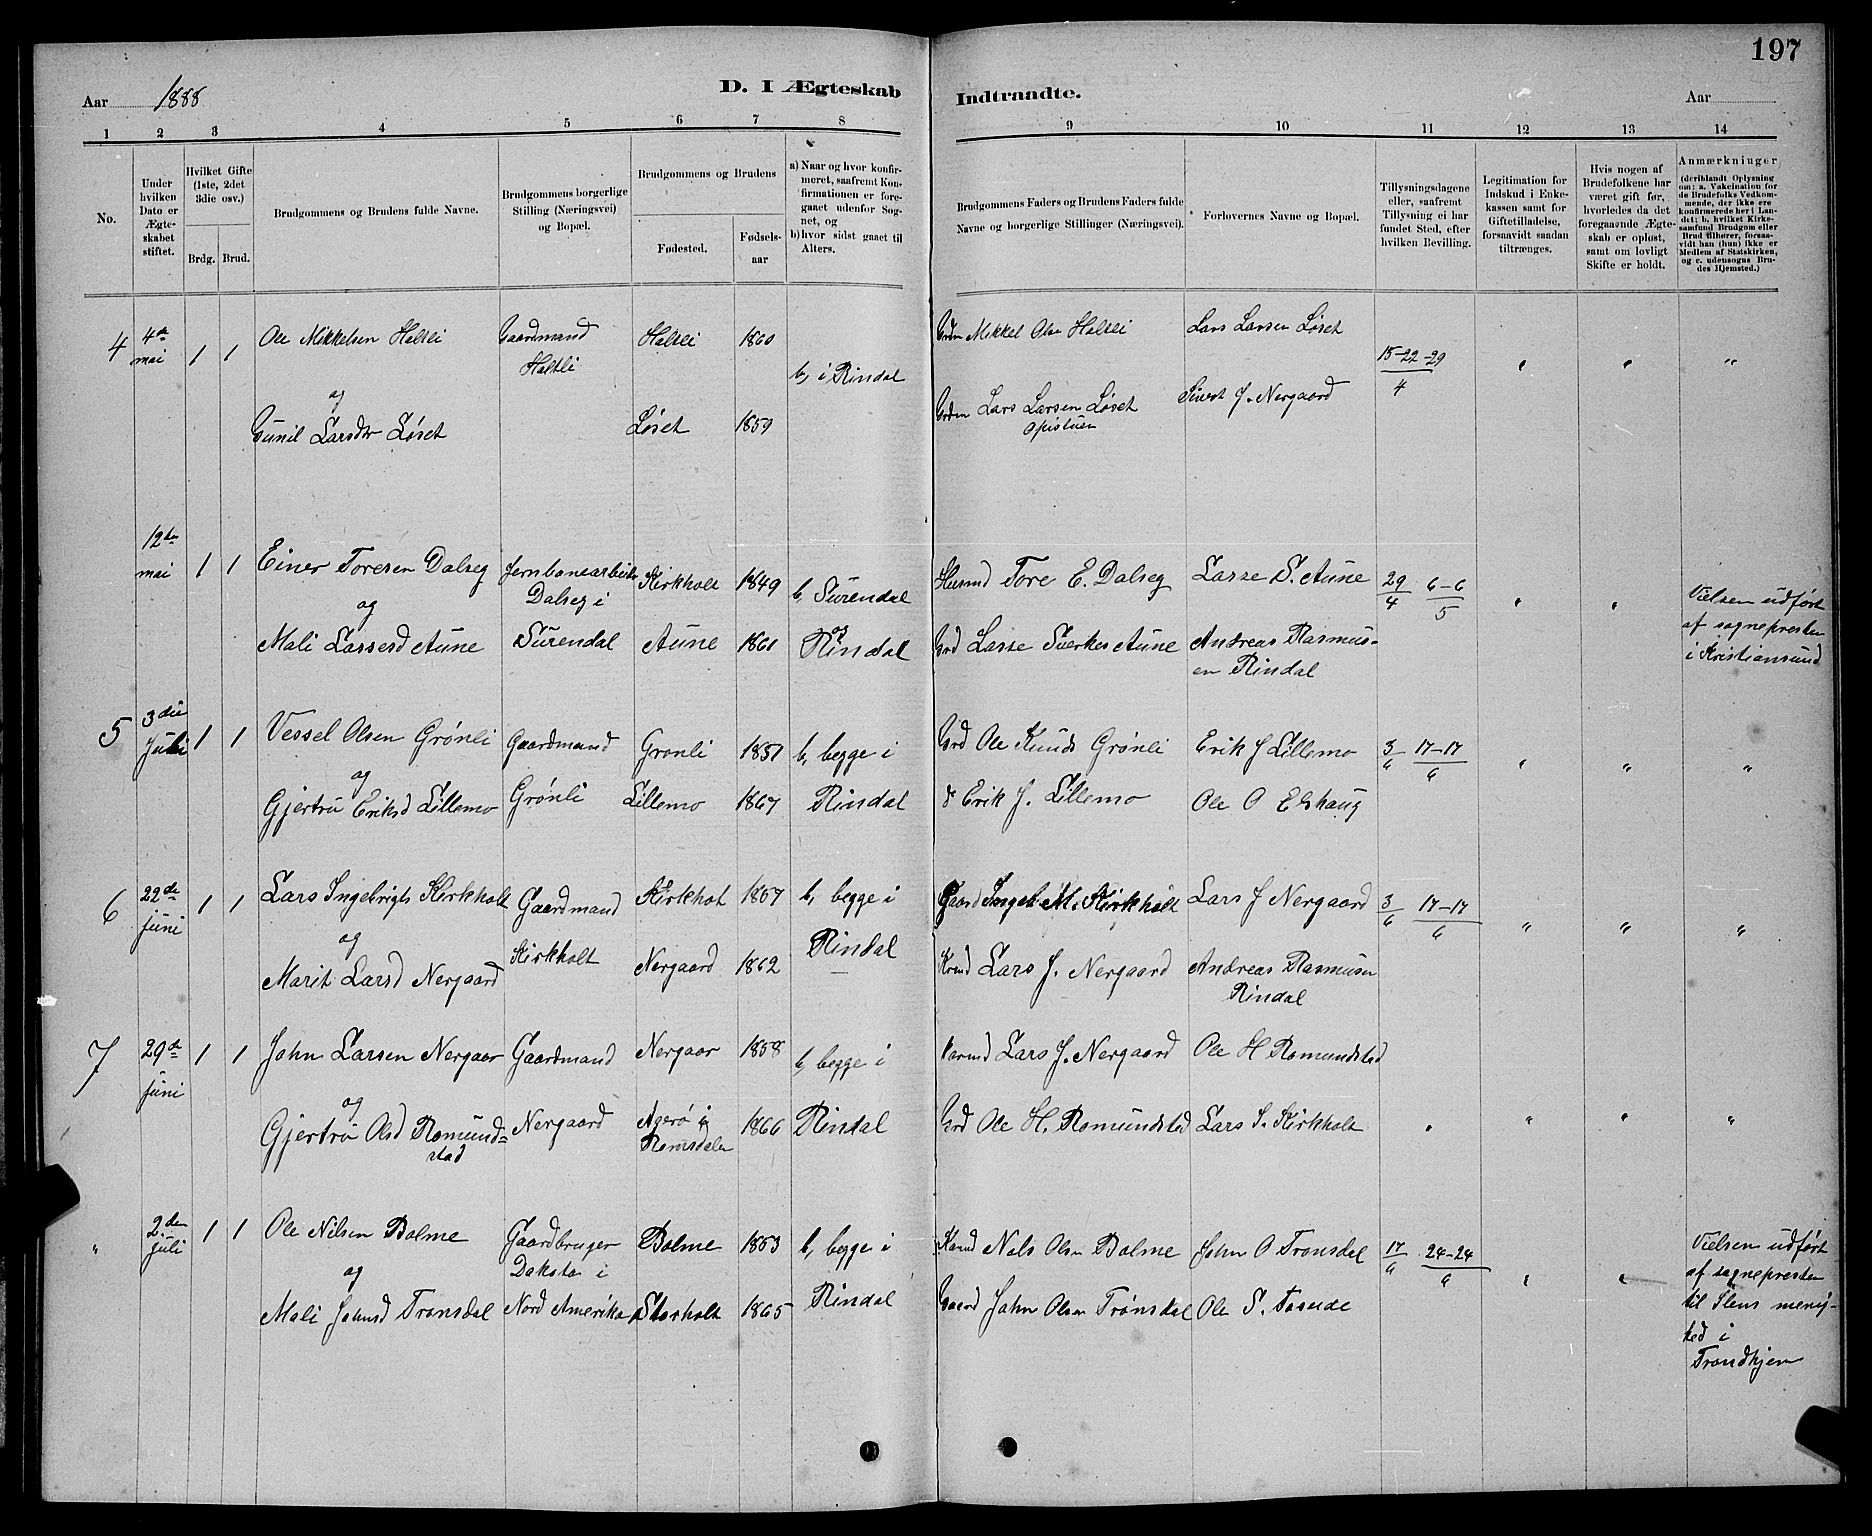 197
Aar 1888
D. I Ægteskab
Indtraadte.
Aar
1 2 3 4 5 6 7 8 9 10 11 12 13 14
No.
Under
hvilken
Dato er
Ægte-
skabet
stiftet.
Hvilket Gifte
(1ste, 2det
3die osv.)
Brdg. Brud.
Brudgommens og Brudens fulde Navne.
Brudgommens borgerlige
Stilling (Næringsvei)
og Bopæl.
Brudgommens og Brudens
Fødested.
Fødsels-
aar
a) Naar og hvor konfir-
meret, saafremt Kon-
firmationen er fore-
gaaet udenfor Sog-
net, og
b) hvor sidst gaaet til
Alters.
Brudgommens Faders og Brudens Faders fulde
Navne og borgerlige Stillinger (Næringsvei).
Forlovernes Navne og Bopæl.
Tillysningsdagene
eller, saafremt
Tillysning ei har
fundet Sted, efter
hvilken Bevilling.
Legitimation for
Indskud i Enke-
kassen samt for
Giftetilladelse,
forsaavidt saadan
tiltrænges.
Hvis nogen af
Brudefolkene har
været gift før,
hvorledes da det
foregaaende Ægte-
skab er opløst,
samt om lovligt
Skifte er holdt.
Anmærkninger
(deriblandt Oplysning
om: a. Vakcination for
de Brudefolks Vedkom-
mende, der ikke ere
konfirmerede her i Lan-
det; b. hvilket Kirke-
samfund Brudgom eller
Brud tilhører, forsaa-
vidt han (hun) ikke er
Medlem af Statskirken,
og c. udensogns Bru-
des Hjemsted.)
4 4de mai 1 1 Ole Mikkelsen Haltli Gaardmand Haltli 1860 Grdm Mikkel Olsn Haltli Lars Larsen Løset
Haltli b, i Rindal 15-22-29
4 " " "
og Sivert J. Nergaard
Gunil Larsdtr Løset Løset 1859 Grdm Lars Larsen Løset
opistuen
12te mai 1 1 Einer Toresen Dalseg Jernbanearbeider Kirkholt 1849 b, Surendal Husmd Tore E. Dalseg Lasse S. Aune 29/4 6-6/5 " "
og Dalseg i og
Mali Lassesd Aune Surendal Aune 1861 Rindal Grd Lasse Sverkes Aune Andreas Rasmus-
en Rindal
Vielsen udført
af sognepresten
i Kristiansund
5 3die Juli 1 1 Vessel Olsen Grønli Gaardmand Gronli 1851 b, begge i Grd Ole Knuds Grønli Erik J Lillemo 3/6 17-17/6 " " "
og
Gjertru Eriksd Lillemo Grønli Lillemo 1867 Rindal Erik J. Lillemo Ole O Elshaug
6 22de Juni 1 1 Lars Ingebrigts Kirkholt Gaardmand Kirkhot 1857 b, begge i Gaard Ingeb. M. Kirkholt Lars J Nergaard 3/6 17-17/6 " " "
og
Marit Larsd Nergaard Kirkholt Nergaard 1862 Rindal Lars J. Nergaard Andreas Rasmusen
Rindal
7 29de Juni 1 1 John Larsen Nergaar Gaardmand Nergaar 1858 b, begge i Lars J. Nergaard Ole H Romundstad
og
Gjertru Olsd Romund- Nergaard Agerø i 1866 Rindal Grd Ole H. Romundstad Lars I. Kirkholt " " " "
stad Romsdalen
" 2den Juli 1 1 Ole Nilsen Bolme Gaardbruger Bolme 1853 b, begge i Nals Olsn Bolme John O Tronsdal 17/6 24-24/6 " "
og Dakota i
Mali Johnsd Tronsdal Nord Amerika Storholt 1865 Rindal Gaard John Olsen Trønsdal Ole S. Fosude
Vielsen udført
af sognepresten
til Ilens menig-
hed i
Trondhjem